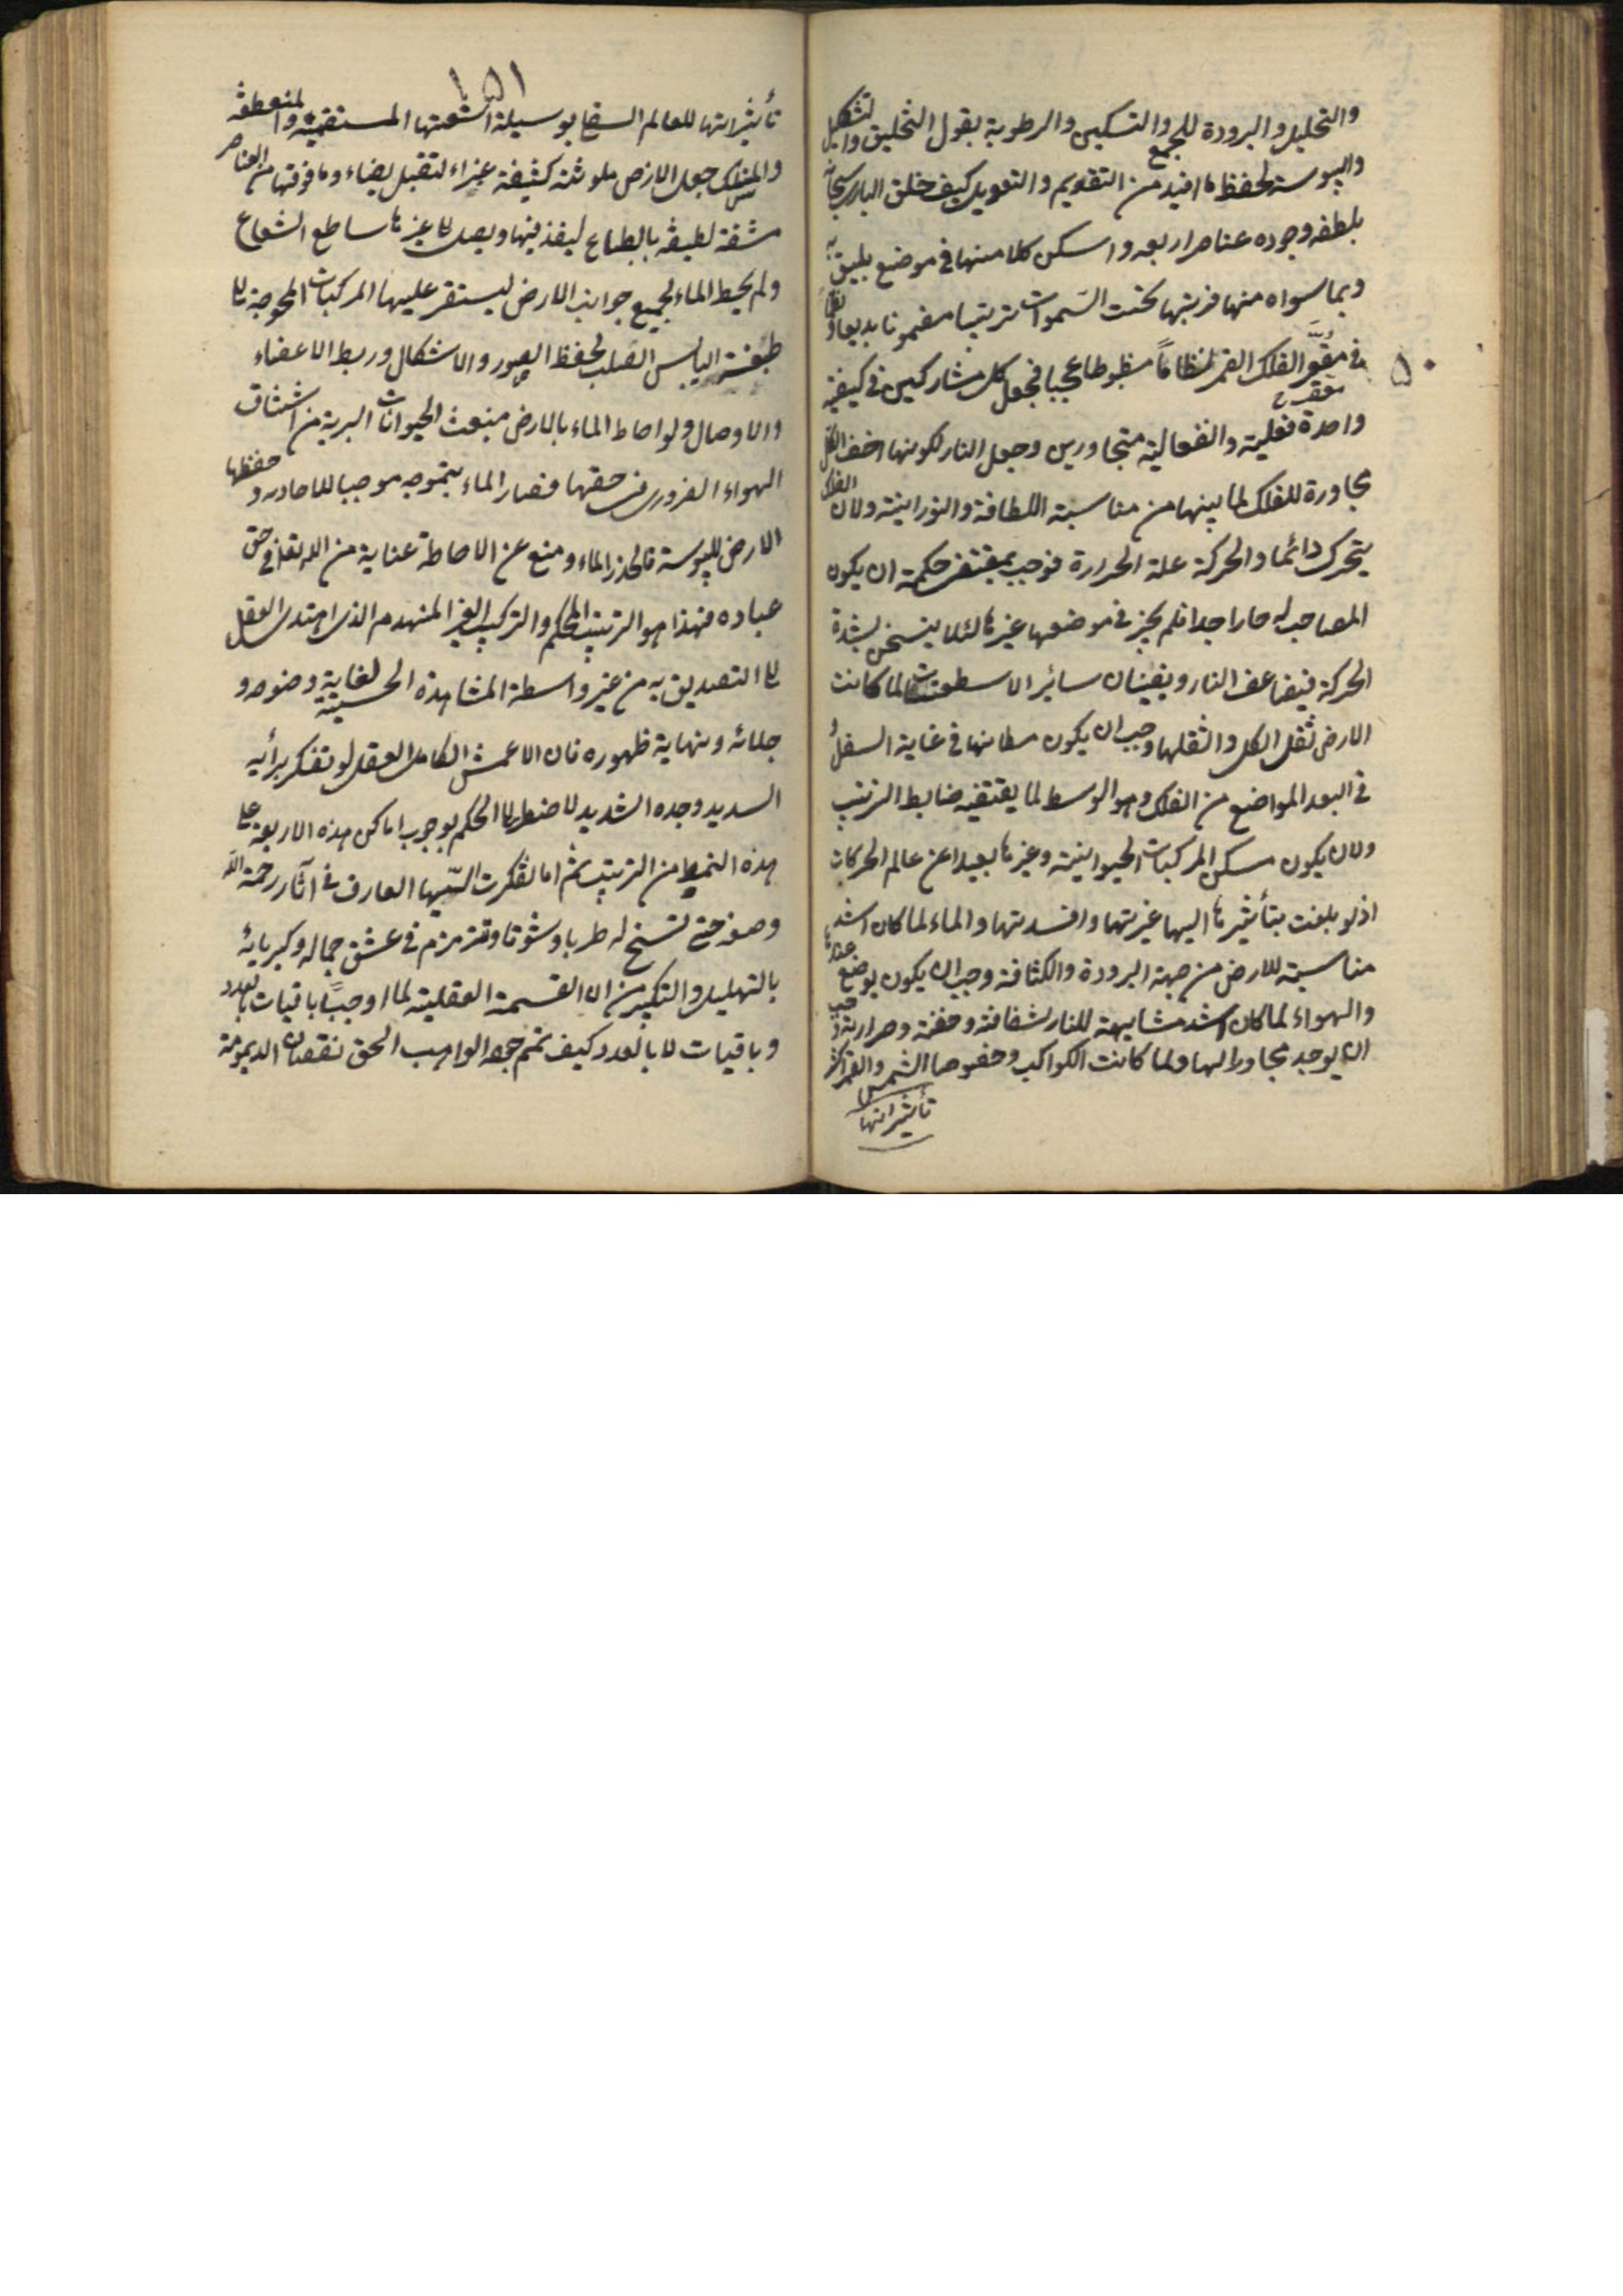 والتحليل والبرودة للجمع والتسكين والرطوبة بقول التخليق والتشكيل
واليبوسة لحفظ ما افيد من التقويم والتعديل كيف خلق الباری سبحانه
بلطفه وجوده عناصر اربعه واسكن كلا منها فی موضع يليق به
وبما سواه منها فرتبها تحت السموات ترتيبا بديعا ونظما
فی مقعر الفلك القمر نظاماً مظبوطا عجيبا فجعل كل مشاركين فی كيفية
مقعر
۵۰
واحدة فعلية وانفعالية متجاورين وجعل النار لكونها اخف الكل
مجاورة للفلك لما بينها من مناسبة اللطافة والنورانية ولان الفلك
يتحرك دائما والحركة علة الحرارة فوجب بمقتضی حكمة ان يكون
المصاحب له حارا جدا فلم يجز فی موضعها غيرها لئلا يتسخن بشدة
الحركة فيتضاعف النار ويفسدان سائر الاسطقسات لما كانت
الارض ثقل الكل واثقلها وجب ان يكون مكانها فی غاية السفل و
فی البعد المواضع من الفلك وهو الوسط لما يقتضيه ضابط الترتيب
ولان يكون مسكن المركبات الحيوانية وغيرها بعيدا عن عالم الحركات
اذ لو بلغت بتأثيرها اليها غيرتها وافسدتها والماء لما كان اشد
مناسبة للارض من جهة البرودة والكثافة وجب ان يكون بوضع عندها
والهواء لما كان اشد مشابهة للنار لشفافته وخفته وحرارته وجب
ان يوجد مجاورا لها ولما كانت الكواكب وخصوصا الشمس والقمر اكثر
تأثيراتها
۱۵۱
تأثيراتها للعالم السفلی بوسيلة اشعتها المستقيمة والمنعطفة
والمنعكس جعل الارض ملونة كثيفة غبراء لتقبل يضاء وما فوقها من العناصر
مشفة لطيفه بالطباع لينفذ فيها ويصل الی غيرها ساطع الشعاع
ولم يحيط الماء لجميع جوانب الارض ليستقر عليها المركبات المحوجة الی
اليابس الصلب لحفظ الصور والاشكال وربط الاعضاء
والاوصال ولو احاط الماء بالارض منعت الحيوانات البرية من اشتناق
الهواء الضروری فی حقها فصار الماء بتموجه موجبا للاحاده و حفظها
الارض لليبوسة فانحذر الماء ومنع عن الاحاطة عناية من الله تعالی فی حق
عباده فهذا هو الترتيب المحكم والتركيب الغير المنهدم الذی اهتدی العقل
الی التصديق به من غير واسطة المشاهدة الحسية لغاية وضوحه و
جلائه ونهاية ظهوره فان الاعمش الكامل العقل لو تفكر برأيه
السديد وجده الشديد لاضطر الی الحكم بوجوب اماكن هذه الاربعة علی
هذه النمط من الترتيب ثم اما تفكرت ايها العارف فی آثار رحمة الله
وصنعه حتی له طربا وشوقا وتترنم فی عشق جماله وكبريائه
بالتهليل والتكبير من ان القسمة العقلية لما اوجبت باقيات بالعدد
وباقيات لا بالعدد كيف تمم جود الواهب الحق نقصان الديمومة